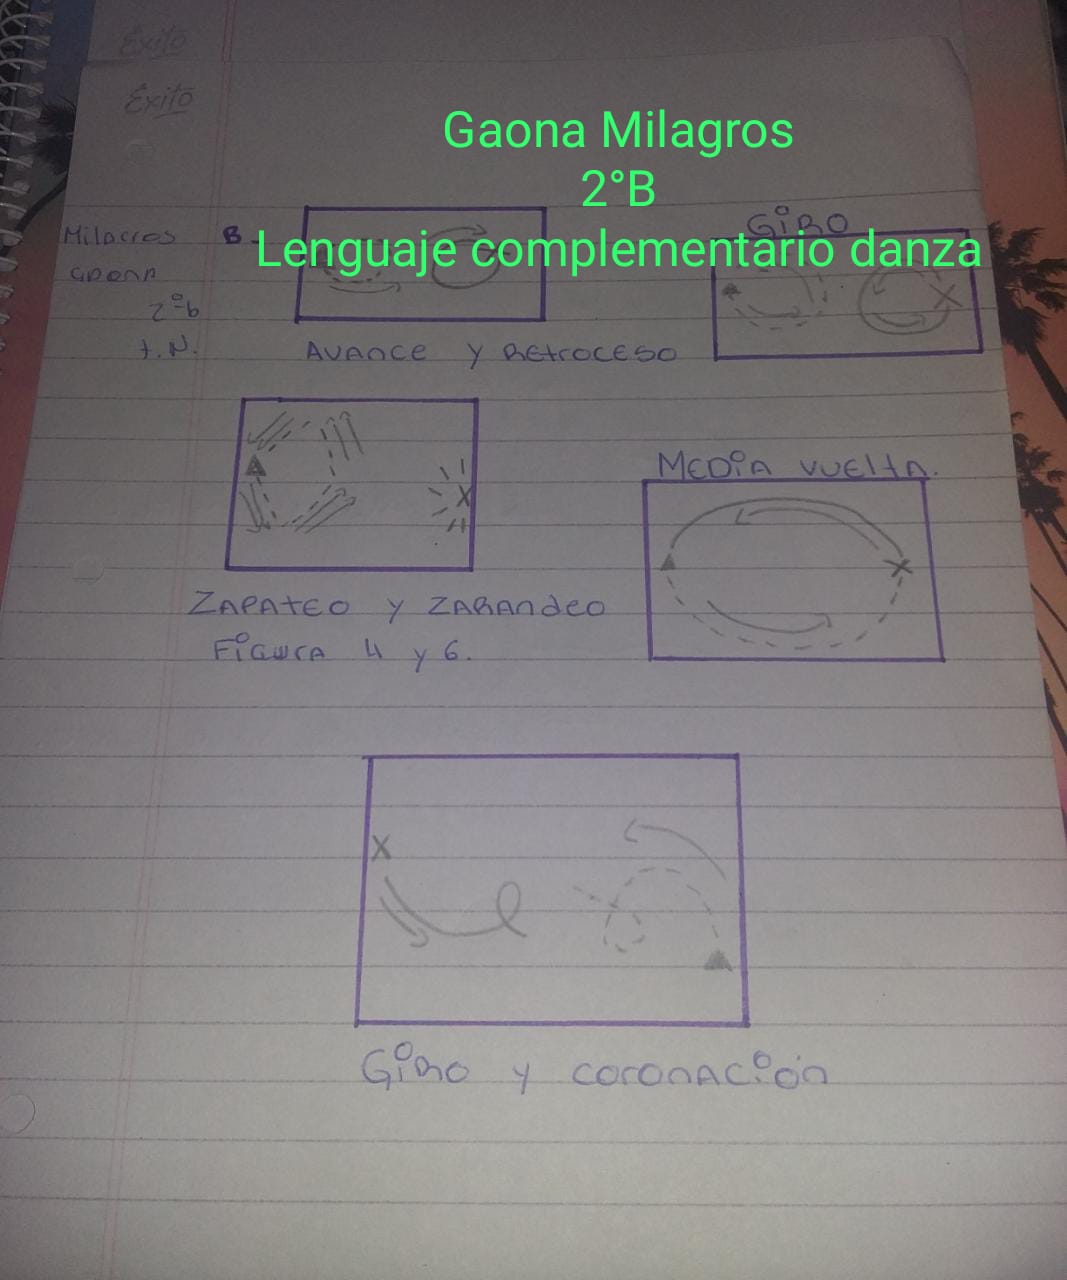 Éxito
Éxito
Gaona Milagros
2°B
Lenguaje complementario danza
Milagros
Gaona
2º b
t.N.
B.
GiRO
AVANCE y RETROCESO
MEDiA VUELTA.
ZAPATEO y ZARANdEO
FiGURA 4 y 6.
GiRO y CORONACióN